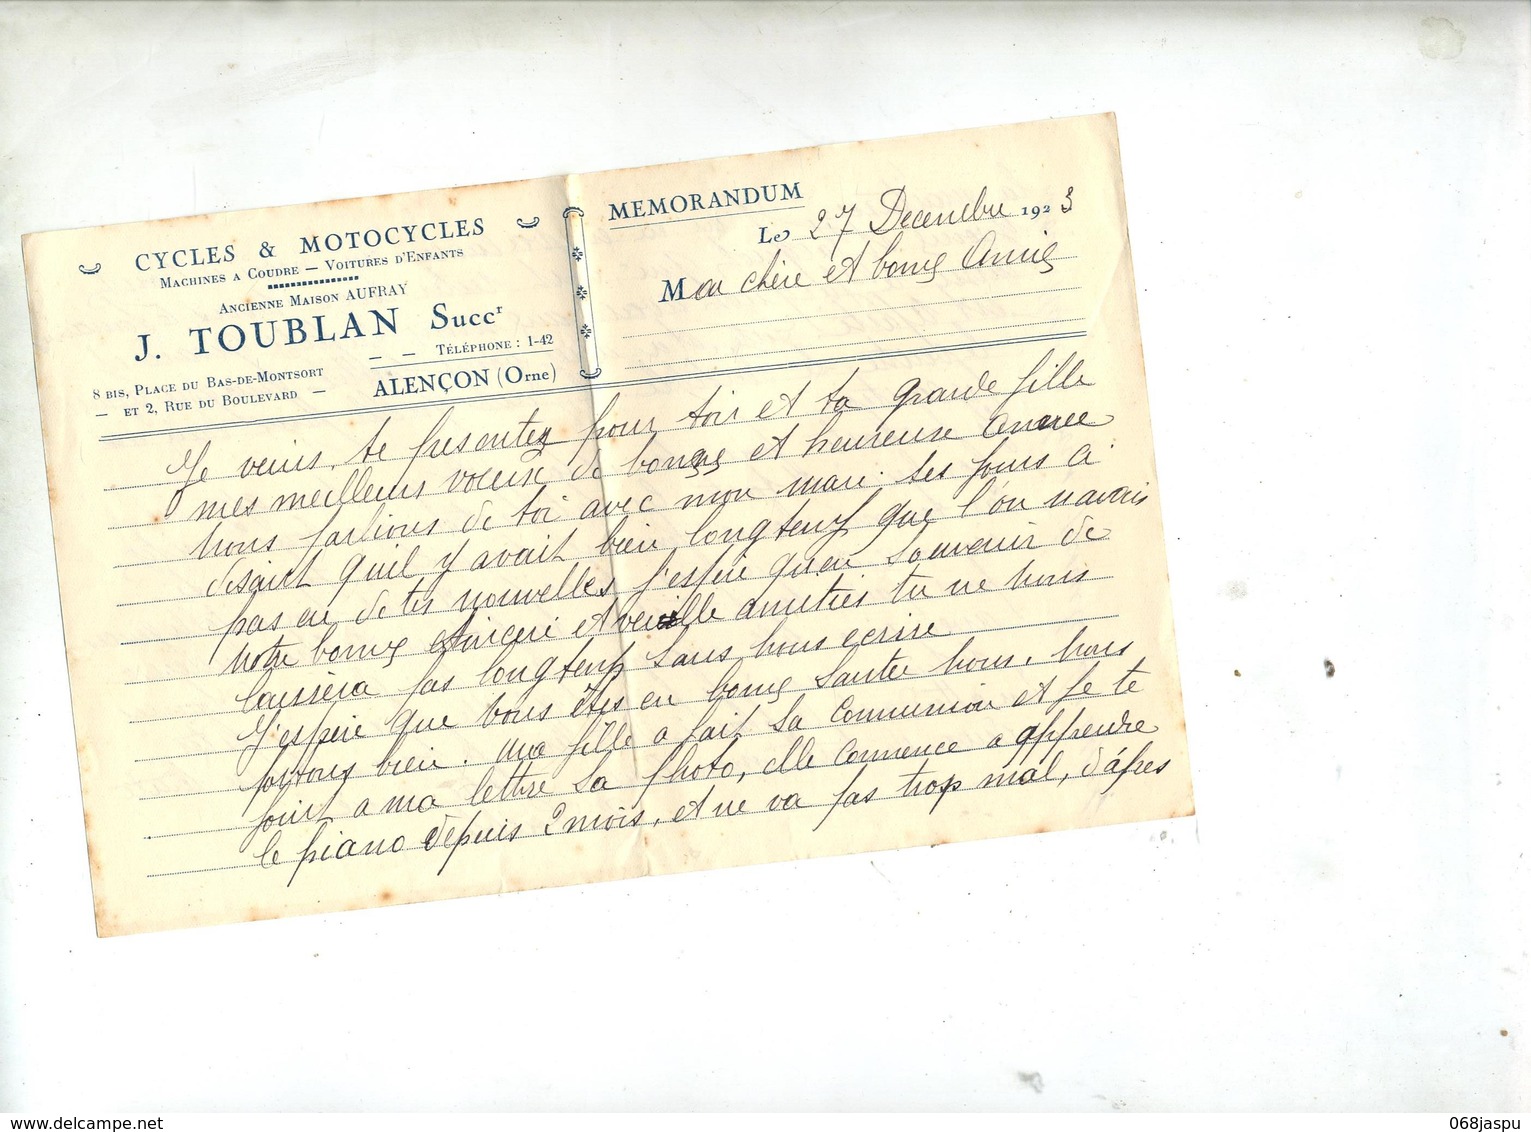 CYCLES & MOTOCYCLES
MACHINES A COUDRE — VOITURES D'ENFANTS
ANCIENNE MAISON AUFRAY
J. TOUBLAN Succr
TÉLÉPHONE : 1-42
8 BIS, PLACE DU BAS-DE-MONTSORT
— ET 2, RUE DU BOULEVARD —
ALENÇON (Orne)
MEMORANDUM
Le 27 Decembre 1923
Ma chère et bonne Amie
Je viens te presenter pour toi et ta grande fille
mes meilleurs voeux de bonne et heureuse Année
nous parlions de toi avec mon mari ses jours a
disant quil y avait bien longtemps que l'on navais
pas eu de tes nouvelles j'espère quen souvenir de
notre bonne et sincere et veille amities tu ne nous
laissera pas longtemps sans nous ecrire
J'espère que vous êtes en bonne santee nous, nous
portons bien. Ma fille a fait sa Communion et je te
joint a ma lettre sa photo, elle commence a apprendre
le piano depuis 2 mois, et ne va pas trop mal, d'après
068jaspu